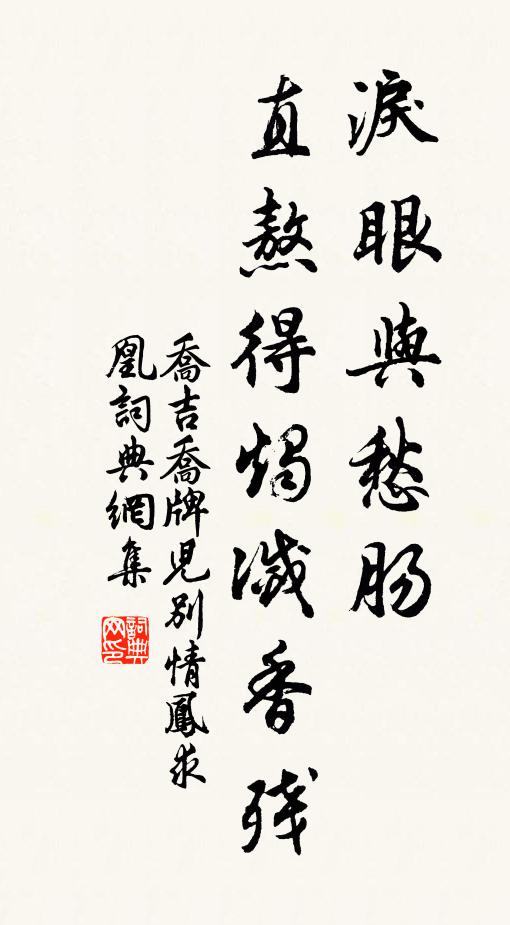 淚眼與愁腸
直熬得燭滅香殘
喬吉喬牌児別情鳳求
凰詞典網集
詞典
网印